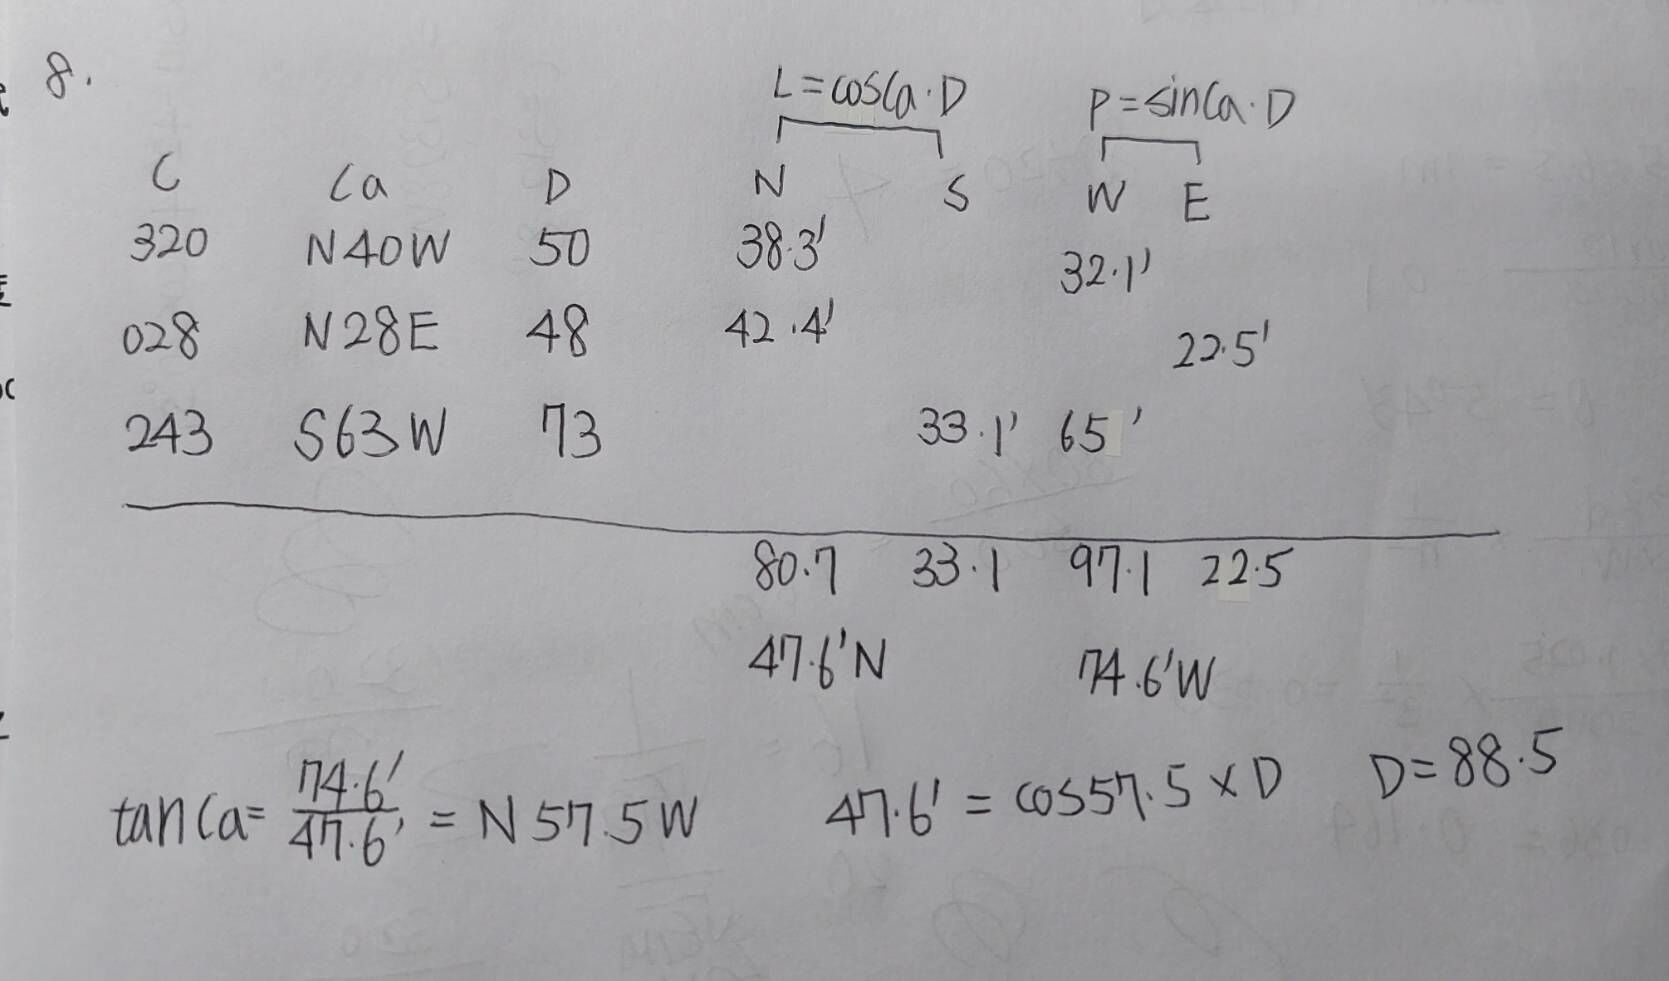 8.
L=cosCa·D P=sinCa·D
C Ca D N S W E
320 N40W 50 38.3' 32.1'
028 N28E 48 42.4' 22.5'
243 S63W 73 33.1' 65'
80.7 33.1 97.1 22.5
47.6'N 74.6'W
tanCa= 74.6'/47.6' = N57.5W 47.6' = cos57.5×D D=88.5